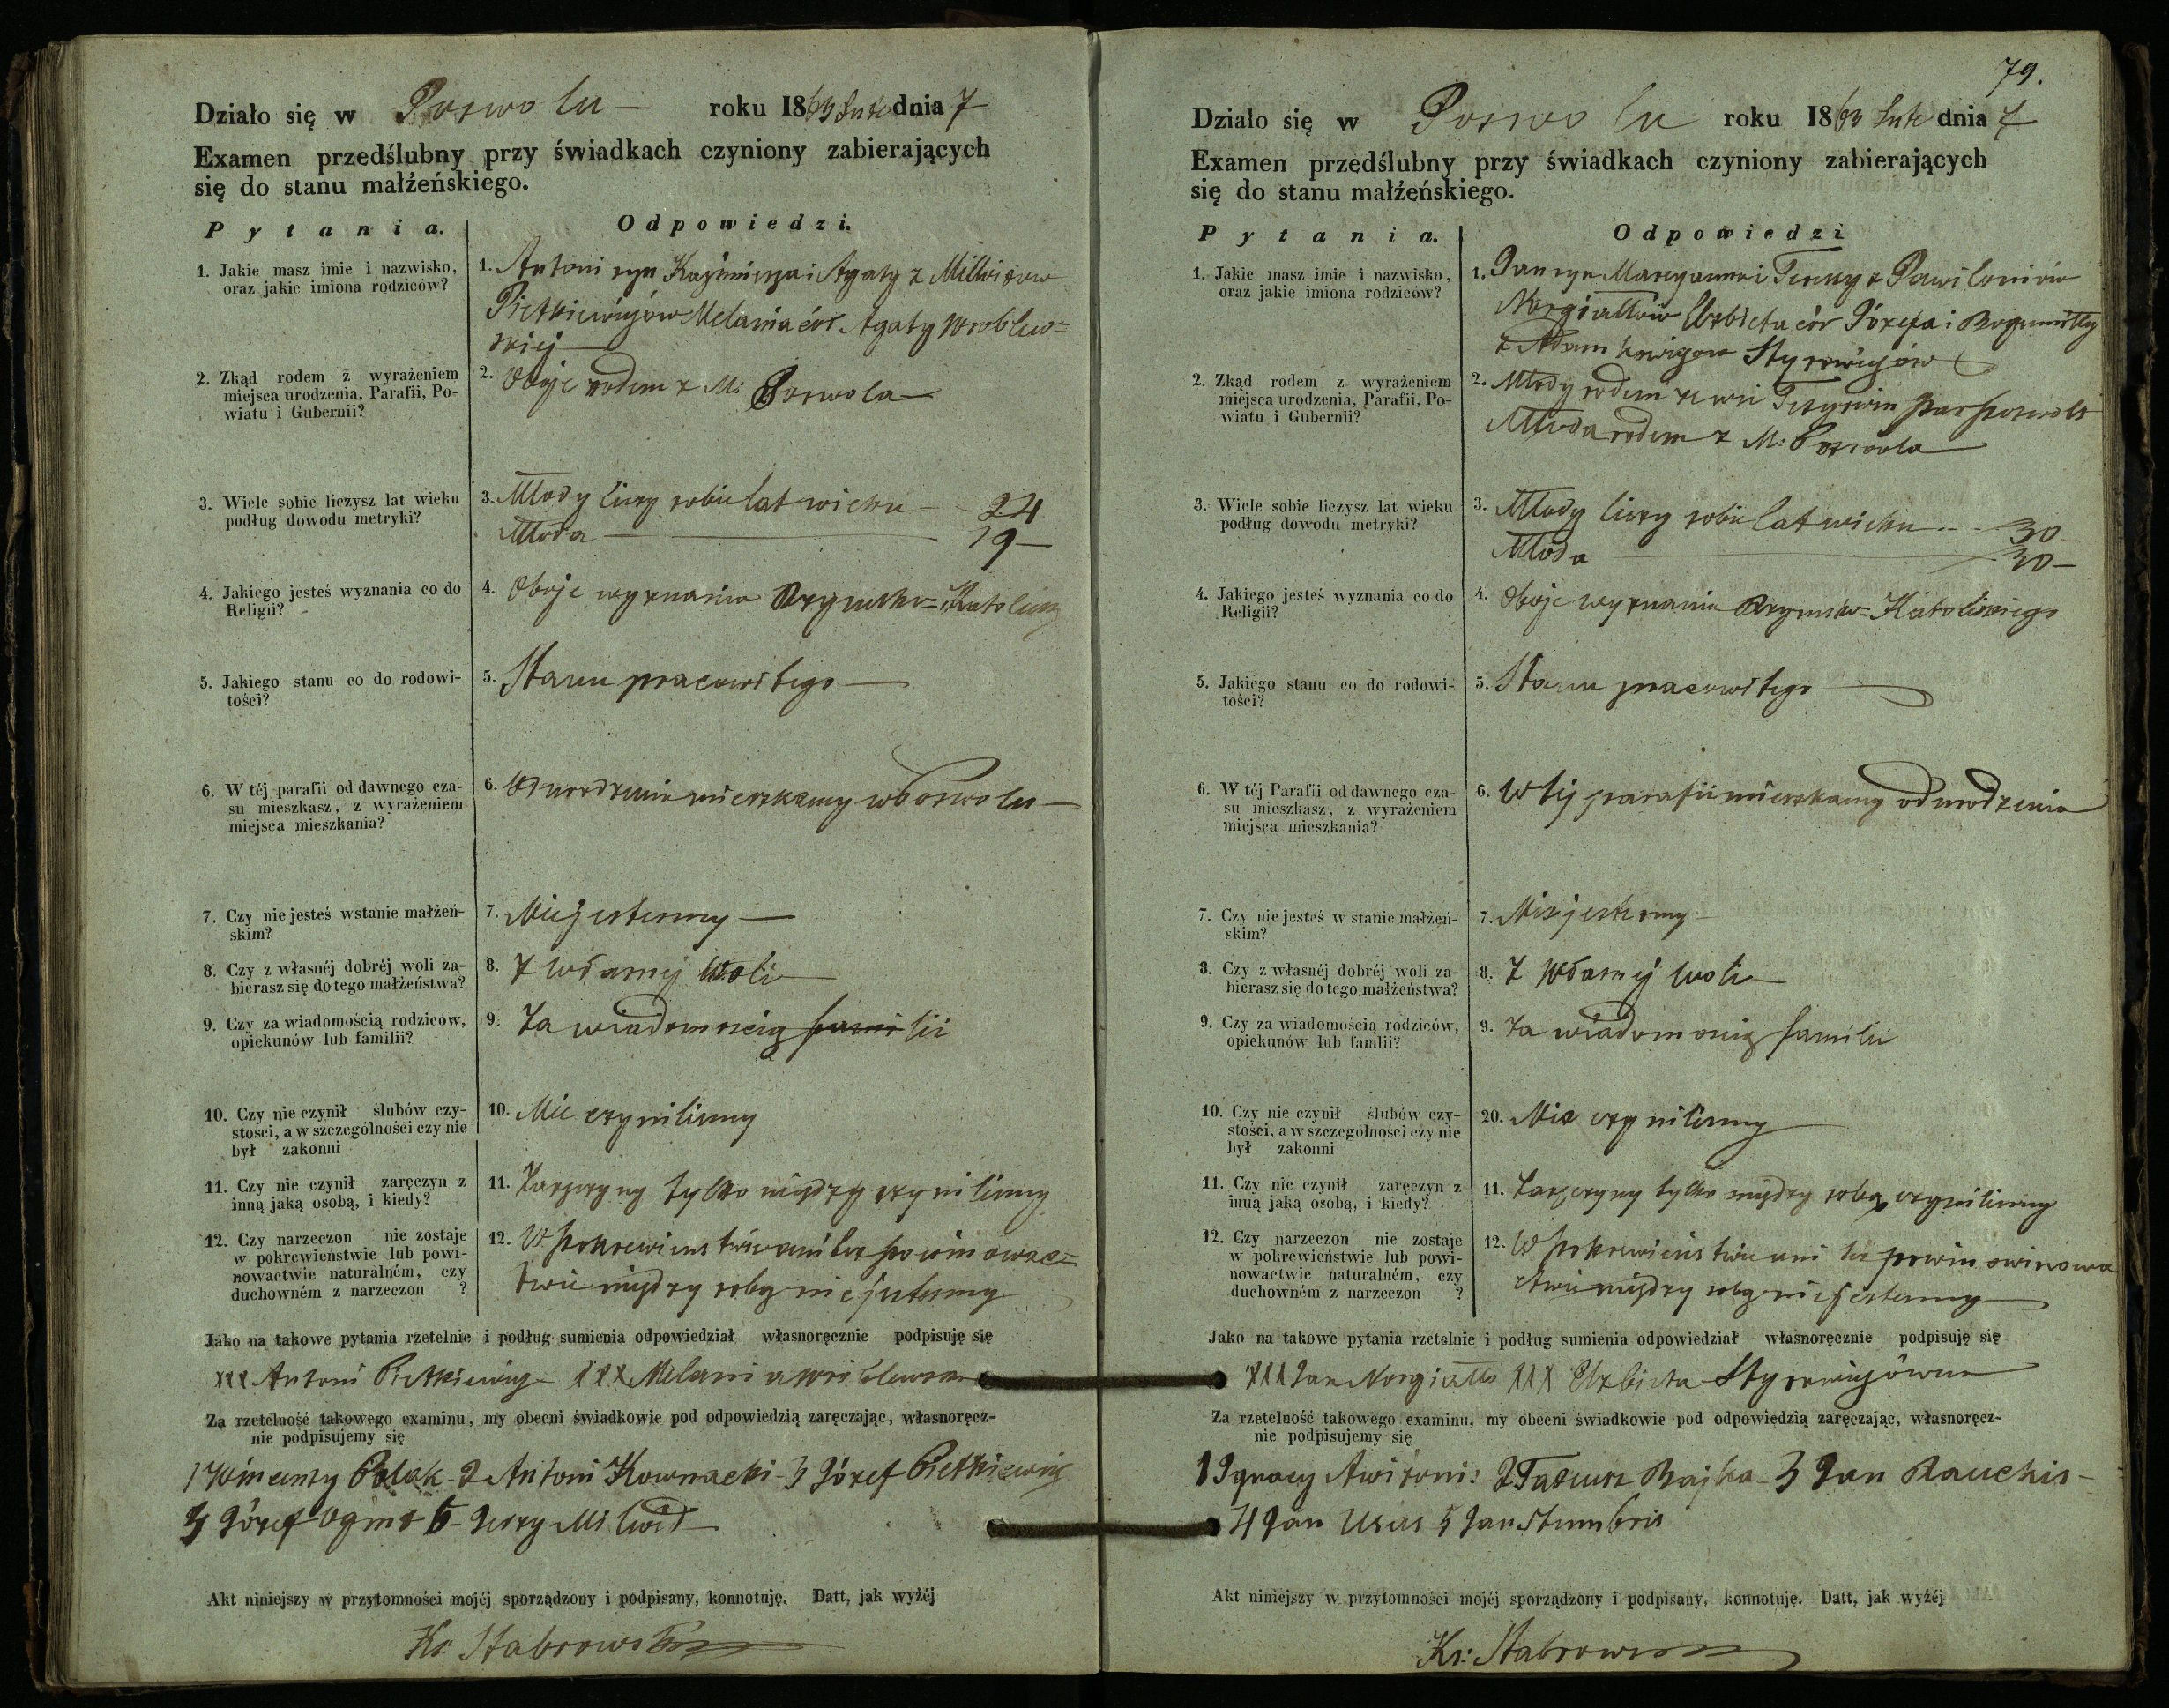 Działo się w Poswolu — roku 1863 Lute dnia 7
Examen przedślubny przy świadkach czyniony zabierających
się do stanu małżeńskiego.
Pytania. Odpowiedzi.
1. Jakie masz imie i nazwisko,
oraz jakie imiona rodziców?
1. Antoni syn Kaźmierza i Agaty z Millwidow
Pietkiewiczów Melania cór Agaty Wroblew=
skiej
2. Zkąd rodem z wyrażeniem
miejsca urodzenia, Parafii, Po-
wiatu i Gubernii?
2. Oboje rodem z M: Poswola
3. Wiele sobie liczysz lat wieku
podług dowodu metryki?
3. Młody liczy sobie lat wieku — 24
Młoda — 19 —
4. Jakiego jesteś wyznania co do
Religii?
4. Oboje wyznania Rzymsko=Katolicz
5. Jakiego stanu co do rodowi-
tości?
5. Stanu pracowitego —
6. W téj parafii od dawnego cza-
su mieszkasz, z wyrażeniem
miejsca mieszkania?
6. Od urodzenia mieszkamy w Poswolu —
7. Czy nie jesteś wstanie małżeń-
skim?
7. Nie jestesmy —
8. Czy z własnéj dobréj woli za-
bierasz się do tego małżeństwa?
8. Z własnej woli —
9. Czy za wiadomością rodziców,
opiekunów lub familii?
9. Za wiadomoscią familii
10. Czy nie czynił ślubów czy-
stości, a w szczególności czy nie
był zakonni
10. Nie czynilismy
11. Czy nie czynił zaręczyn z
inną jaką osobą, i kiedy?
11. Zaręczyny tylko między czynilismy
12. Czy narzeczon nie zostaje
w pokrewieństwie lub powi-
nowactwie naturalném, czy
duchowném z narzeczon ?
12. W pokrewienstwie ani też powinowac=
twie między sobą nie jestesmy
Jako na takowe pytania rzetelnie i podług sumienia odpowiedział własnoręcznie podpisuję się
XXX Antoni Pietkiewicz XXX Melania Wróblewska
Za rzetelność takowego examinu, my obecni świadkowie pod odpowiedzią zaręczając, własnoręcz-
nie podpisujemy się
1 Wincenty Polak - 2 Antoni Kownacki - 3 Józef Pietkiewicz
4 Józef 5 - Jerzy Milwid —
Akt niniejszy w przytomności mojéj sporządzony i podpisany, konnotuję. Datt, jak wyżéj
Ks. Stabrowski
79.
Działo się w Poswolu roku 1863 Lute dnia 7
Examen przedślubny przy świadkach czyniony zabierających
się do stanu małżeńskiego.
Pytania. Odpowiedzi
1. Jakie masz imie i nazwisko,
oraz jakie imiona rodziców?
1. Jan syn Maryanna i Teresy z Pawiloniów
Norgiałłów Elzbieta cór Józefa i Bogumiłły
z Adamkowiczow Styrowiczów
2. Zkąd rodem z wyrażeniem
miejsca urodzenia, Parafii, Po-
wiatu i Gubernii?
2. Młody rodem ze wsi par Poswols
Młoda rodem z M: Poswola
3. Wiele sobie liczysz lat wieku
podług dowodu metryki?
3. Młody liczy sobie lat wieku - - 30
Młoda — 30 —
4. Jakiego jesteś wyznania co do
Religii?
4. Oboje wyznania Rzymsko=Katolickiego
5. Jakiego stanu co do rodowi-
tości?
5. Stanu pracowitego
6. W téj Parafii od dawnego cza-
su mieszkasz, z wyrażeniem
miejsca mieszkania?
6. W tej parafii mieszkamy od urodzenia
7. Czy nie jesteś w stanie małżeń-
skim?
7. Nie jestesmy —
8. Czy z własnéj dobréj woli za-
bierasz się do tego małżeństwa?
8. Z własnej woli —
9. Czy za wiadomością rodziców,
opiekunów lub famlii?
9. Za wiadomoscią familii
10. Czy nie czynił ślubów czy-
stości, a w szczególności czy nie
był zakonni
20. Nie czynilismy
11. Czy nie czynił zaręczyn z
inuą jaką osobą, i kiedy?
11. Zaręczyny tylko między sobą czynilismy
12. Czy narzeczon nie zostaje
w pokrewieństwie lub powi-
nowactwie naturalném, czy
duchowném z narzeczon ?
12. W pokrewienstwie ani też powinowinowa
ctwie między sobą nie jestesmy —
Jako na takowe pytania rzetelnie i podług sumienia odpowiedział własnoręcznie podpisuję się
XXX Jan Norgiałło XXX Elzbieta Styrowiczówna
Za rzetelność takowego examinu, my obecni świadkowie pod odpowiedzią zaręczając, własnoręcz-
nie podpisujemy się
1 Ignacy Awizonis 2 Tadeusz Bajka - 3 Jan Rauckis -
4 Jan Usas 5 Jan Stumbris
Akt niniejszy w przytomności mojéj sporządzony i podpisany, konnotuję. Datt, jak wyżéj
Ks: Stabrowski